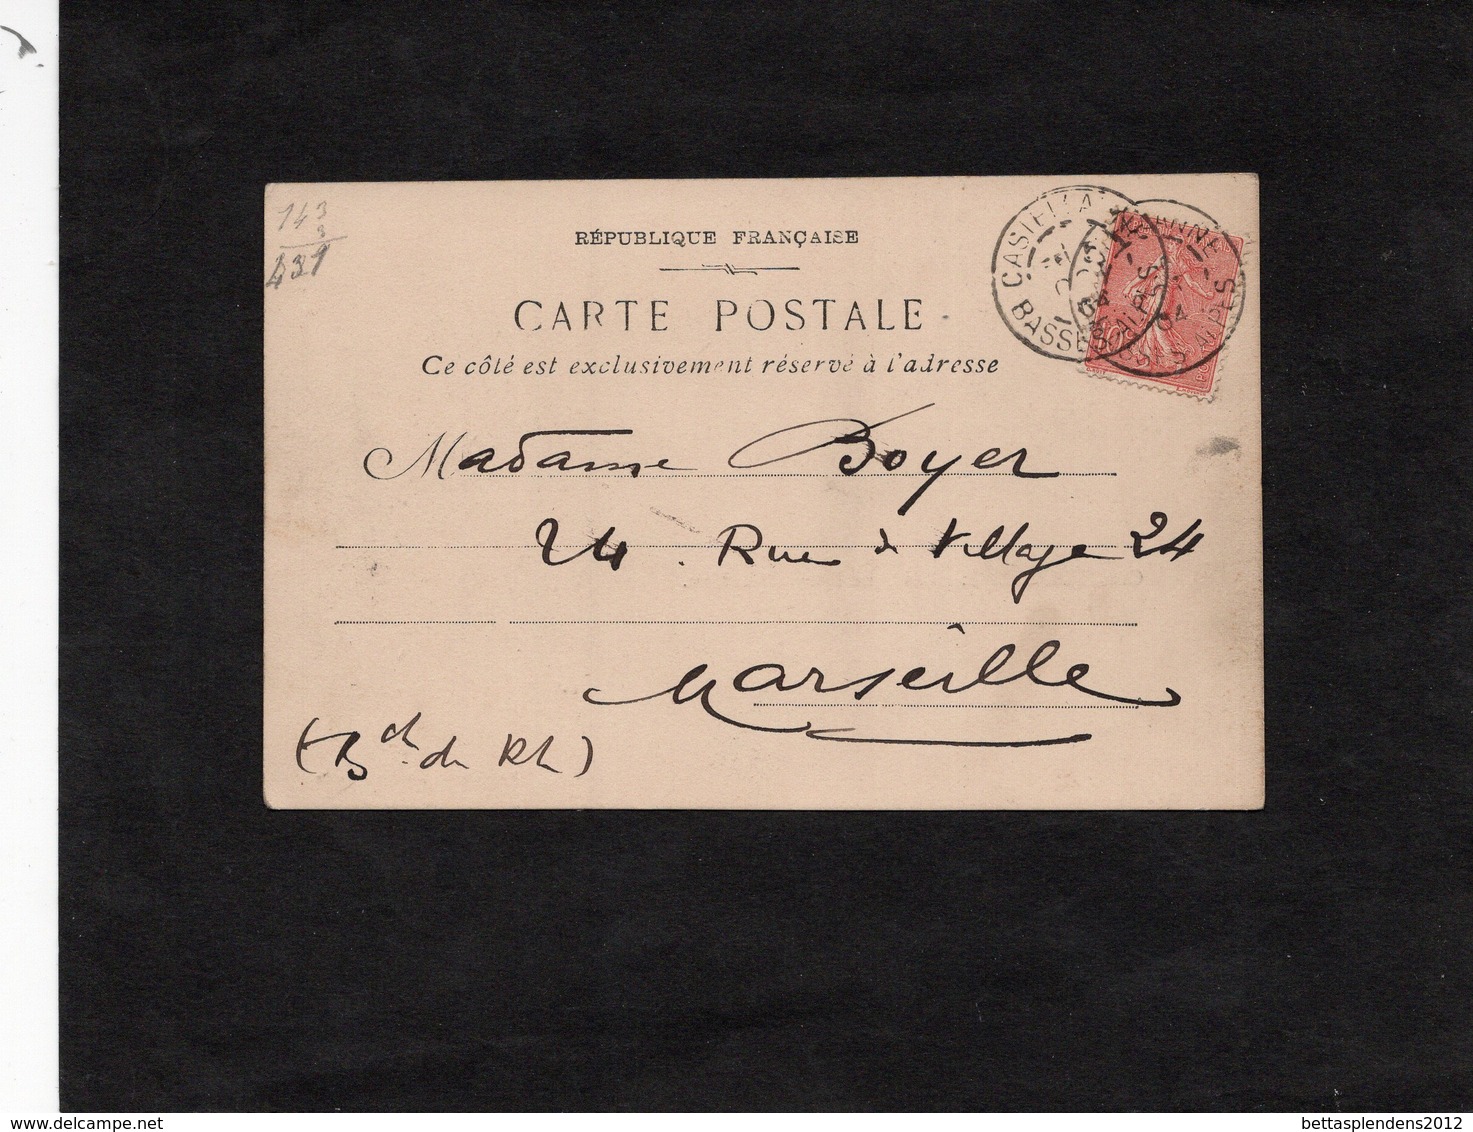 143
3
431
RÉPUBLIQUE FRANÇAISE
CARTE POSTALE
Ce côté est exclusivement réservé à l'adresse
CASTELLANNE
04
BASSES ALPES
04
Madame Boyer
24. Rue de Village 24
Marseille
(Bch du Rh)
bettasplendens2012